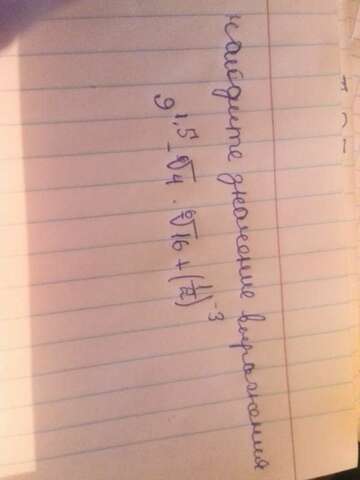 найдите значение выражения
9^1,5 - ⁶√4 · ⁶√16 + (1/2)^-3